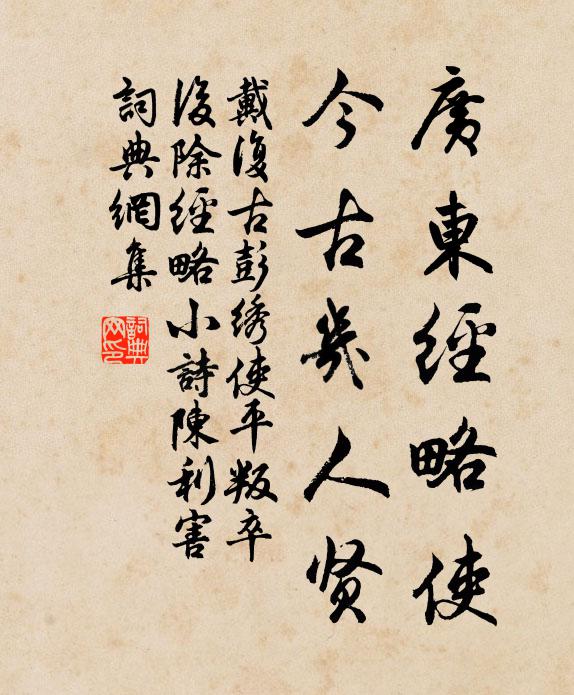 廣東經略使
今古幾人賢
戴復古彭綉使平叛卒
後除經略小詩陳利害
詞典網集
詞典
网印